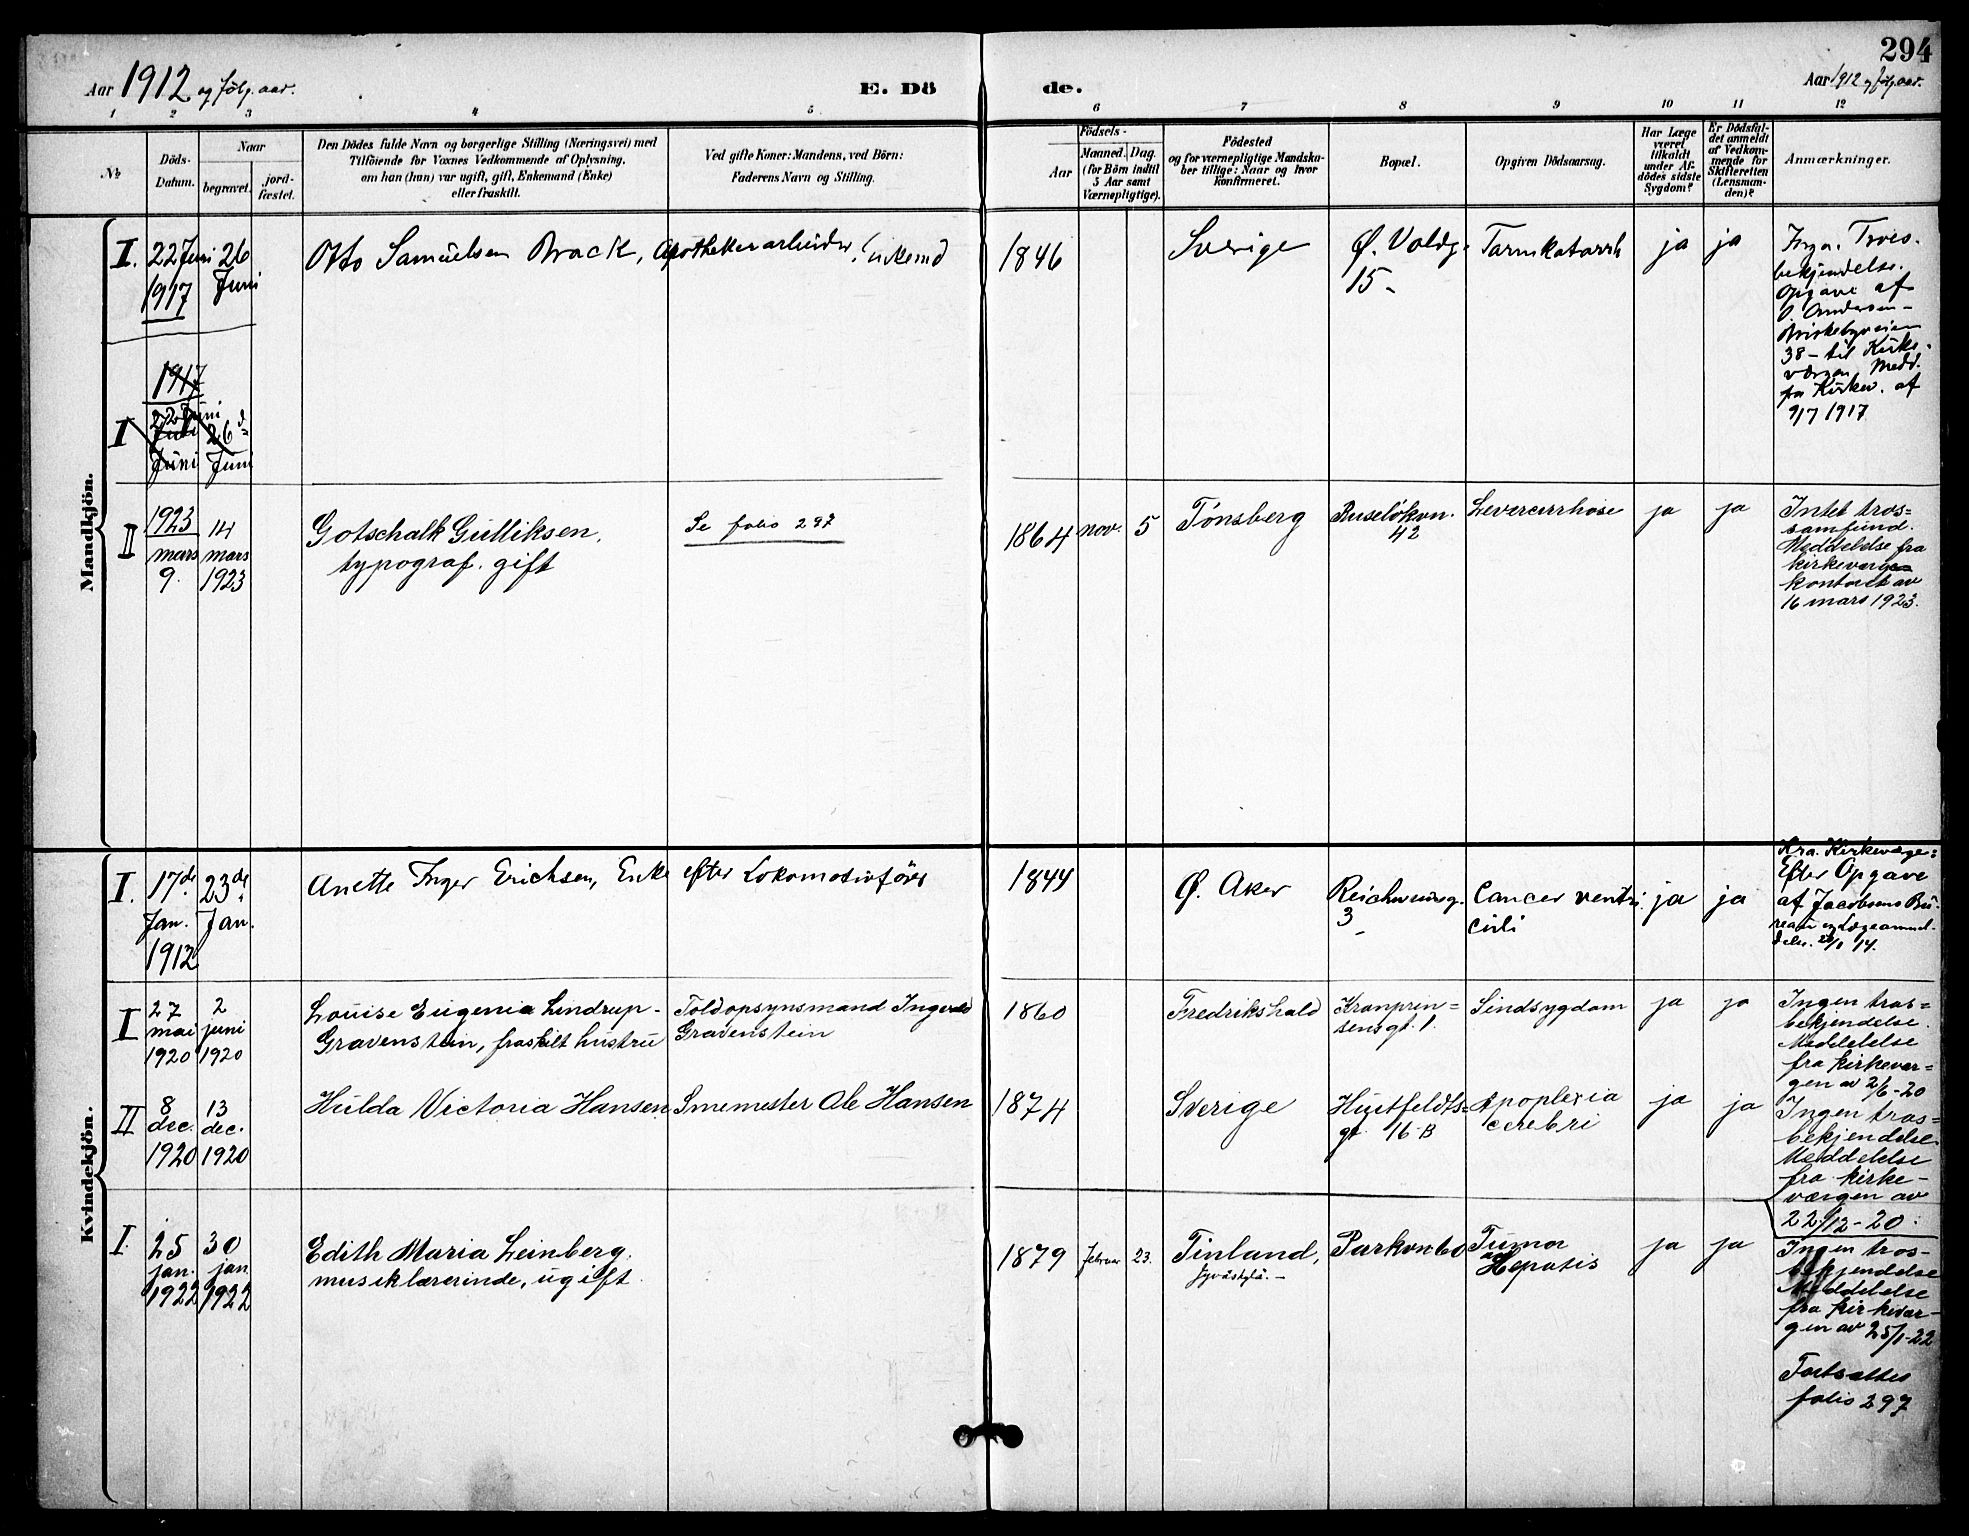 294
Aar 1912 og følg. aar.
E. Dö
de.
Aar 1912 og følg. aar.
1 2 3 4 5 6 7 8 9 10 11 12
№
Döds-
Datum.
Naar
begravet.
jord-
fæstet.
Den Dödes fulde Navn og borgerlige Stilling (Næringsvei) med
Tilföiende for Voxnes Vedkommende af Oplysning,
om han (hun) var ugift, gift, Enkemand (Enke)
eller fraskilt.
Ved gifte Koner: Mandens, ved Börn:
Faderens Navn og Stilling.
Födsels-
Aar
Maaned.
Dag.
(for Börn indtil
5 Aar samt
Værnepligtige).
Födested
og for værnepligtige Mandska-
ber tillige: Naar og hvor
konfirmeret.
Bopæl.
Opgiven Dödsaarsag.
Har Læge
været
tilkaldt
under Af-
dödes sidste
Sygdom?
Er Dödsfal-
det anmeldt
af Vedkom-
mende for
Skifteretten
(Lensman-
den)?
Anmærkninger.
Mandkjön.
I.
22 Juni
1917
26
Juni
Otto Samuelsen Brack, Apothekerarbeider,
1846
Sverige
Ø. Voldg.
15 -
Tarmkatarrh
ja
ja
Ingen Troes-
bekjendelse.
Opgave af
O. Andersen -
Birkebyveien
38 - til Kirke-
værgen. Medd.
fra Kirkev. af
9/7 1917
I
1917
22 Juni
Juni
26d
Juni
II
1923
mars
9.
14
mars
1923
Gotschalk Gulliksen,
typograf. gift
Se folio 297
1864
nov.
5
Tønsberg
Ruseløkvn.
42
Levercirrhose
ja
ja
Intet tros=
samfund.
Meddelelse fra
kirkeverge
kontoret av
16 mars 1923.
Kvindekjön.
I.
17de
Jan.
1912
23de
Jan.
Anette Inger Erichsen, Enke efter Lokomotivfører
1844
Ø. Aker
Reichweinsg.
3
Cancer ventri
culi
ja
ja
Kra. Kirkeværge:
Efter Opgave
af Jacobsens Bu-
reau og Lægeanmel-
delse.
I
27
mai
1920
2
juni
1920
Louise Eugenia Lindrup-
Gravenstein, fraskilt hustru
Toldopsynsmand Ingvald
Gravenstein
1860
Fredrikshald
Kronprin=
sensgt. 1.
Sindsygdom
ja
ja
Ingen tros=
bekjendelse.
Meddelelse
fra kirkevær=
gen av 2/6-20
II
8
dec.
1920
13
dec.
1920
Hulda Victoria Hansen
Smemester Ole Hansen
1874
Sverige
Huitfeldts=
gt. 16 B
Apoplexia
cerebri
ja
ja
Ingen tros=
bekjendelse
Meddelelse
fra kirke-
værgen av
22/12-20.
I
25
jan.
1922
30
jan
1922
Edith Maria Leinberg.
musiklærerinde, ugift.
1879
februar
23.
Finland,
Jyväskylä. -
Parkvn 60
Tumor
Hepatis
ja
ja
Ingen tros-
bekjendelse
Meddelelse
fra kirkevær-
gen av 25/1-22
Fortsættes
folio 297